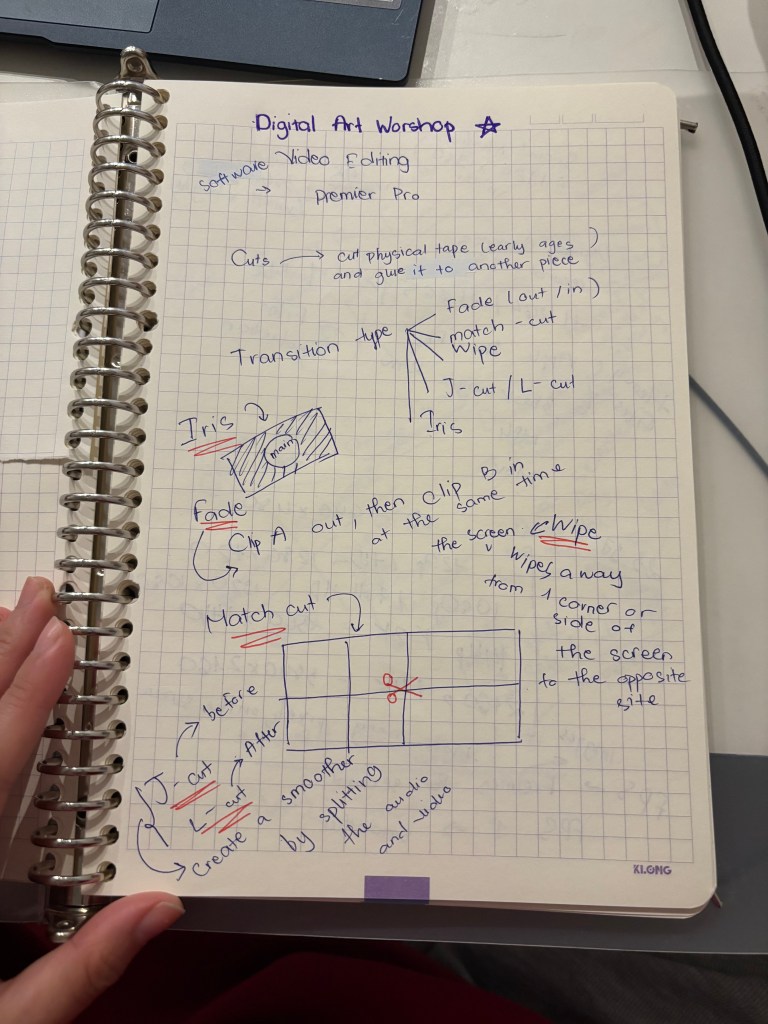 Digital Art Worshop
Video Editing
software
→ Premier Pro
Cuts → cut physical tape (early ages)
and glue it to another piece
Transition type
Fade (out / in)
match - cut
Wipe
J - cut / L - cut
Iris
Iris
main
Fade
Clip A out, then Clip B in
at the same time
Wipe
the screen wipes away
from 1 corner or
side of
the screen
to the opposite
site
Match cut
J - cut → before
L - cut → After
create a smoother
by splitting
the audio
and video
KLONG